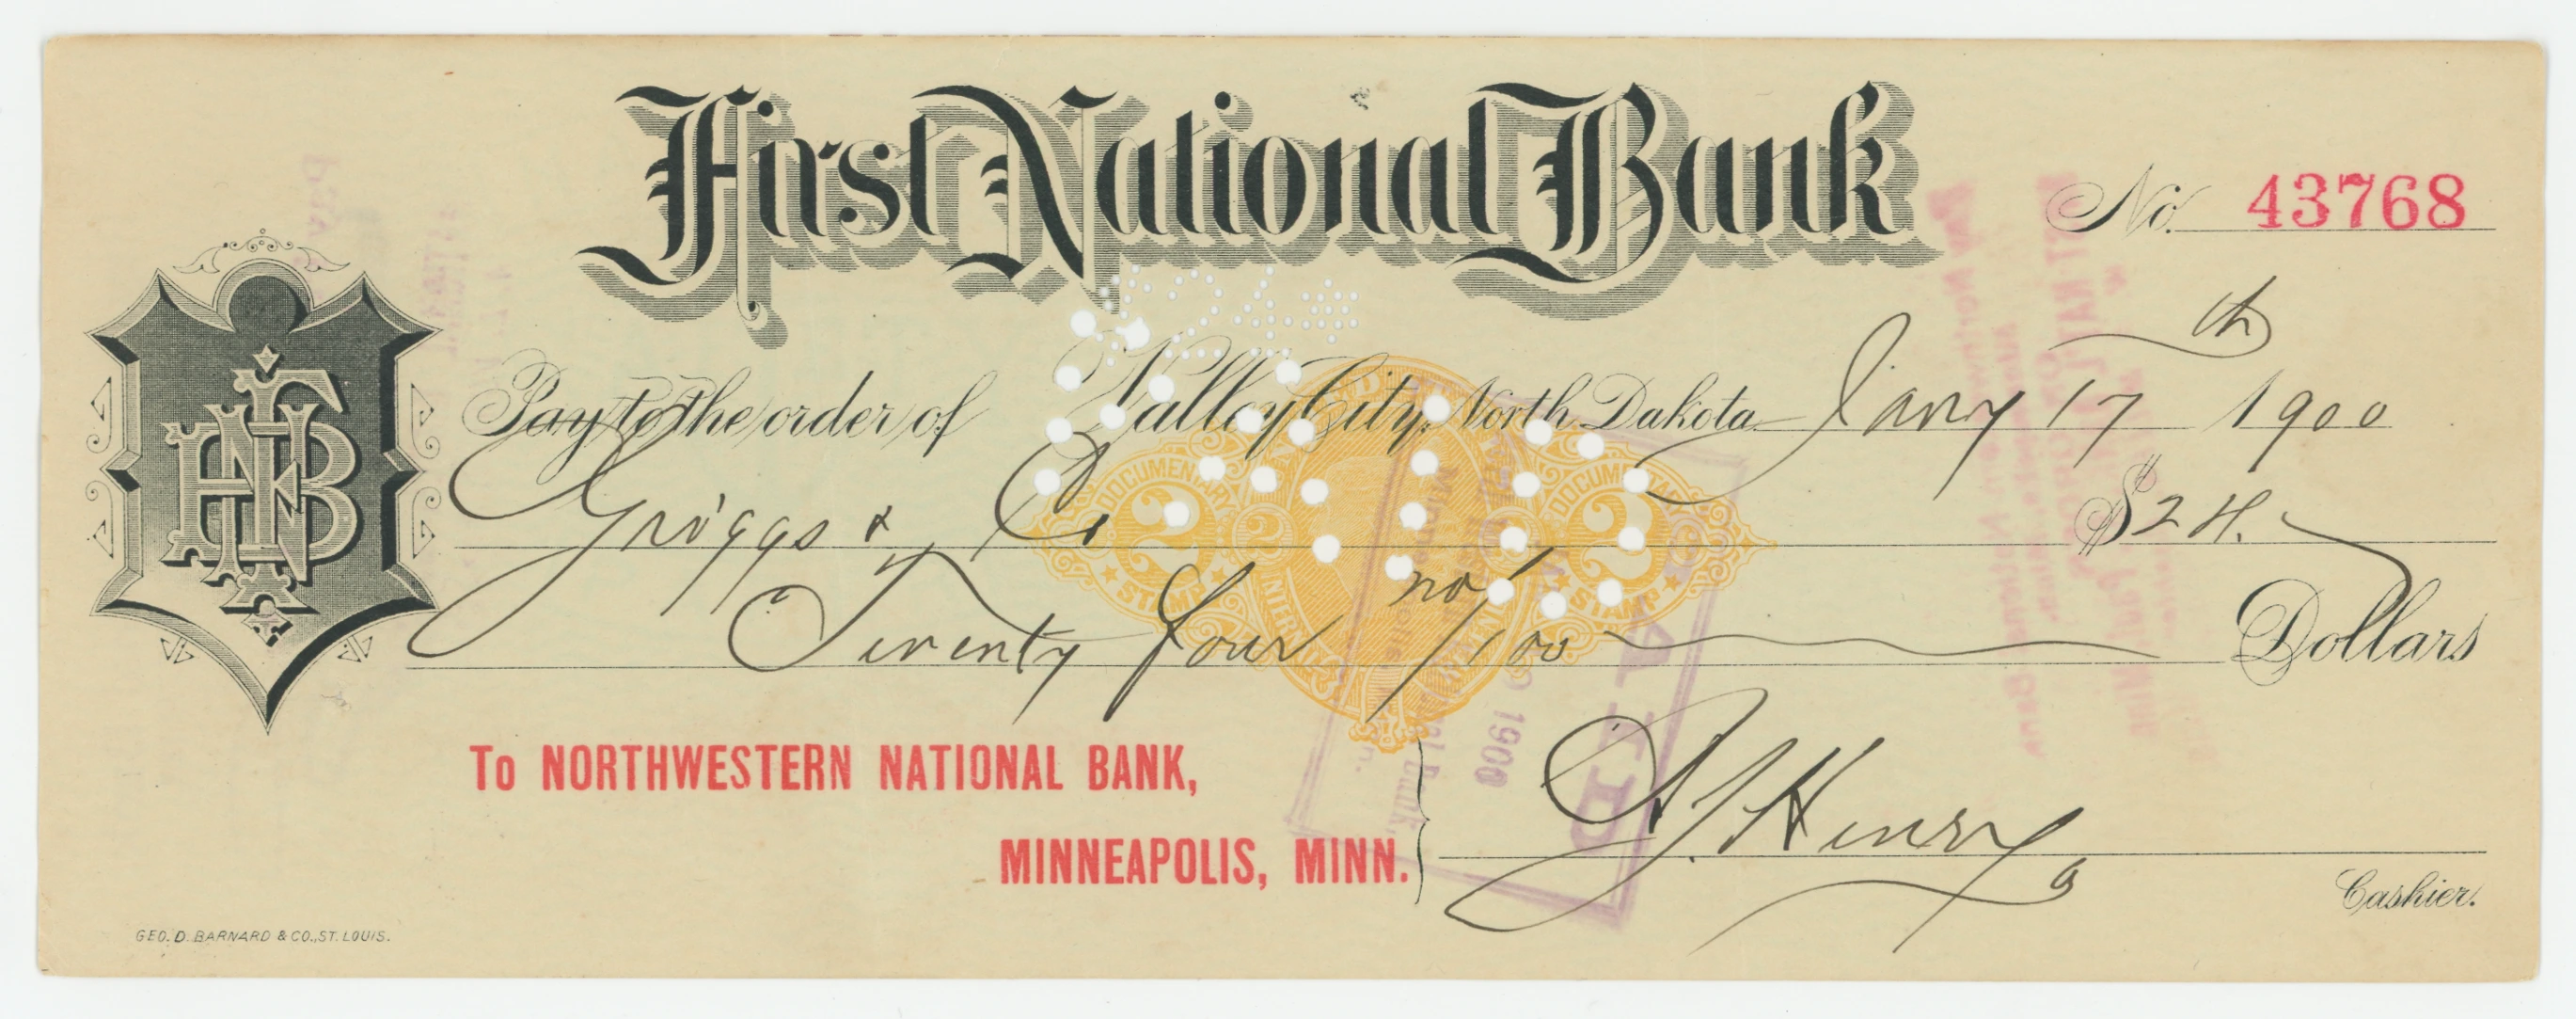 First National Bank
No. 43768
Valley City, North Dakota Jany 17th 1900
Pay to the order of
Griggs & Co $24.
Twenty four no/100 Dollars
To NORTHWESTERN NATIONAL BANK,
MINNEAPOLIS, MINN.
Henry
Cashier.
GEO. D. BARNARD & CO., ST. LOUIS.
FNB
DOCUMENTARY
DOCUMENTARY
2 2 2
STAMP STAMP
1900
PAID
$24*